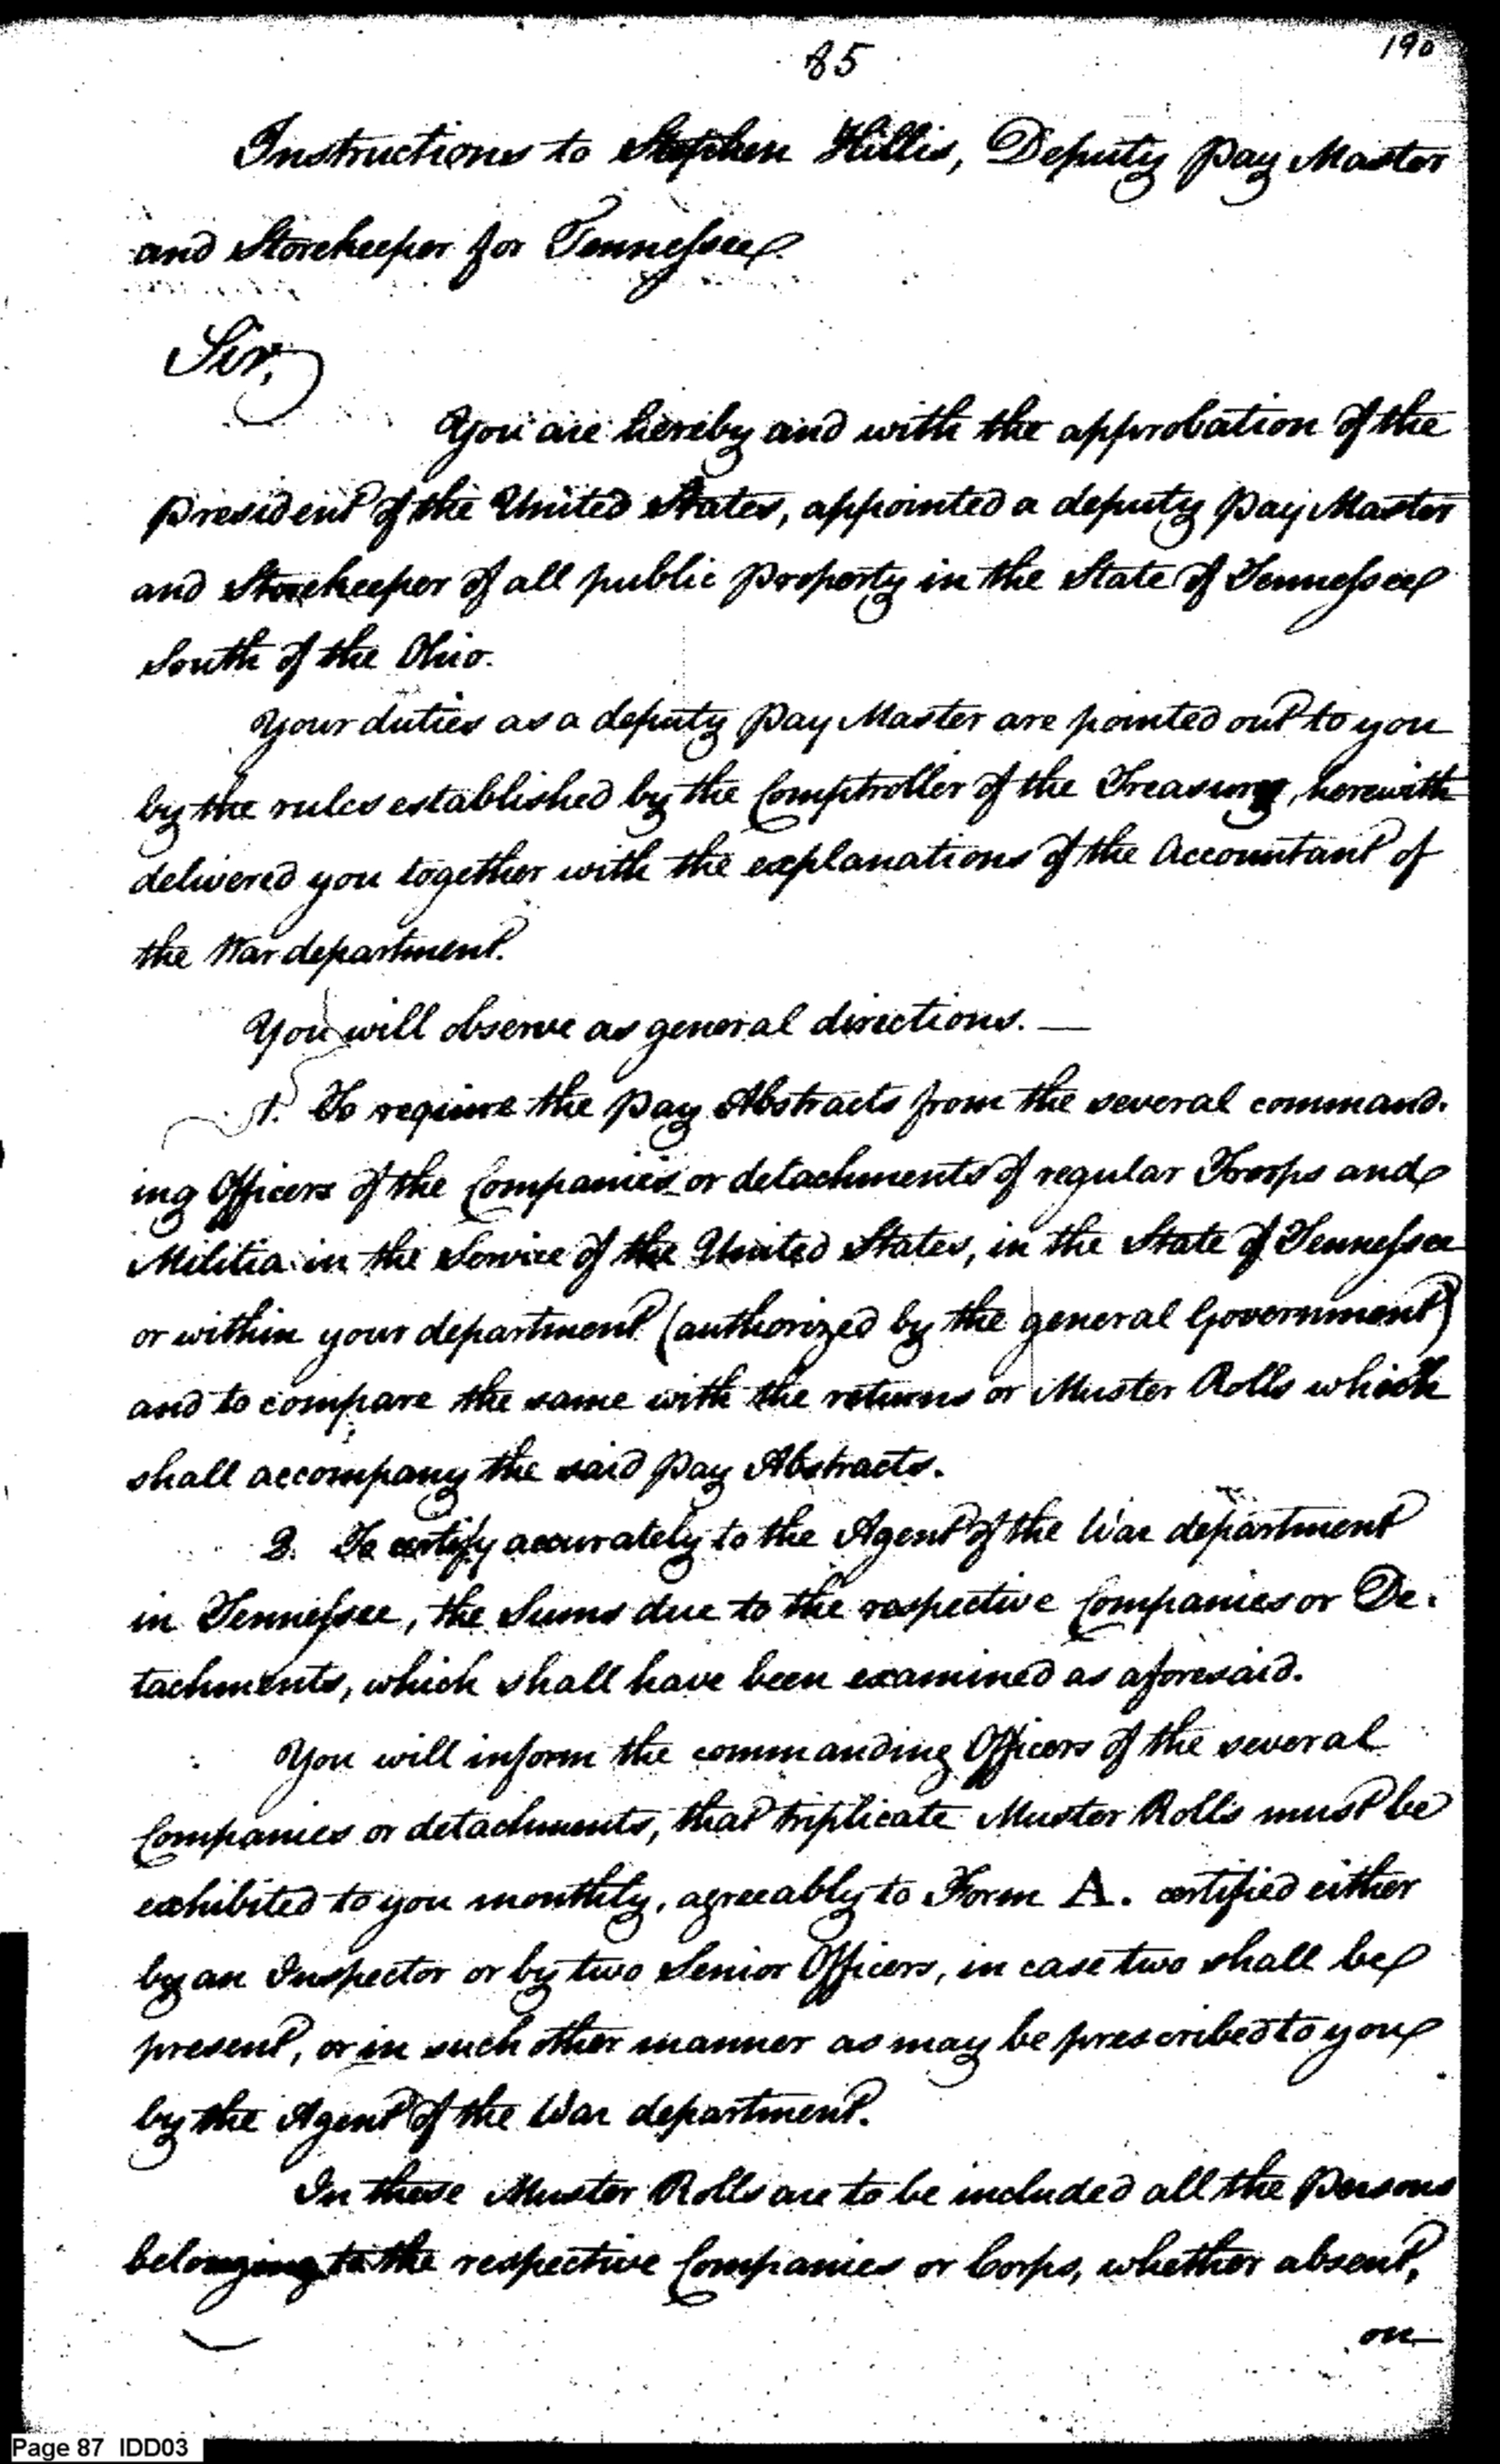 190
85
Instructions to Stephen Hillis, Deputy Pay Master
and Storekeeper for Tennessee.
Sir,
You are hereby and with the approbation of the
President of the United States, appointed a deputy Pay Master
and Storekeeper of all public property in the State of Tennessee
South of the Ohio.
Your duties as a deputy Pay Master are pointed out to you
by the rules established by the Comptroller of the Treasury, herewith
delivered you together with the explanations of the Accountant of
the War department.
You will observe as general directions. —
1. To require the pay Abstracts from the several command-
ing Officers of the Companies or detachments of regular Troops and
Militia in the Service of the United States, in the State of Tennessee
or within your department (authorized by the general Government)
and to compare the same with the returns or Muster Rolls which
shall accompany the said pay Abstracts.
2. To certify accurately to the Agent of the War department
in Tennessee, the Sums due to the respective Companies or De-
tachments, which shall have been examined as aforesaid.
You will inform the commanding Officers of the several
Companies or detachments, that triplicate Muster Rolls must be
exhibited to you monthly, agreeably to Form A. certified either
by an Inspector or by two Senior Officers, in case two shall be
present, or in such other manner as may be prescribed to you
by the Agent of the War department.
In these Muster Rolls are to be included all the Persons
belonging to the respective Companies or Corps, whether absent,
on
Page 87 IDD03